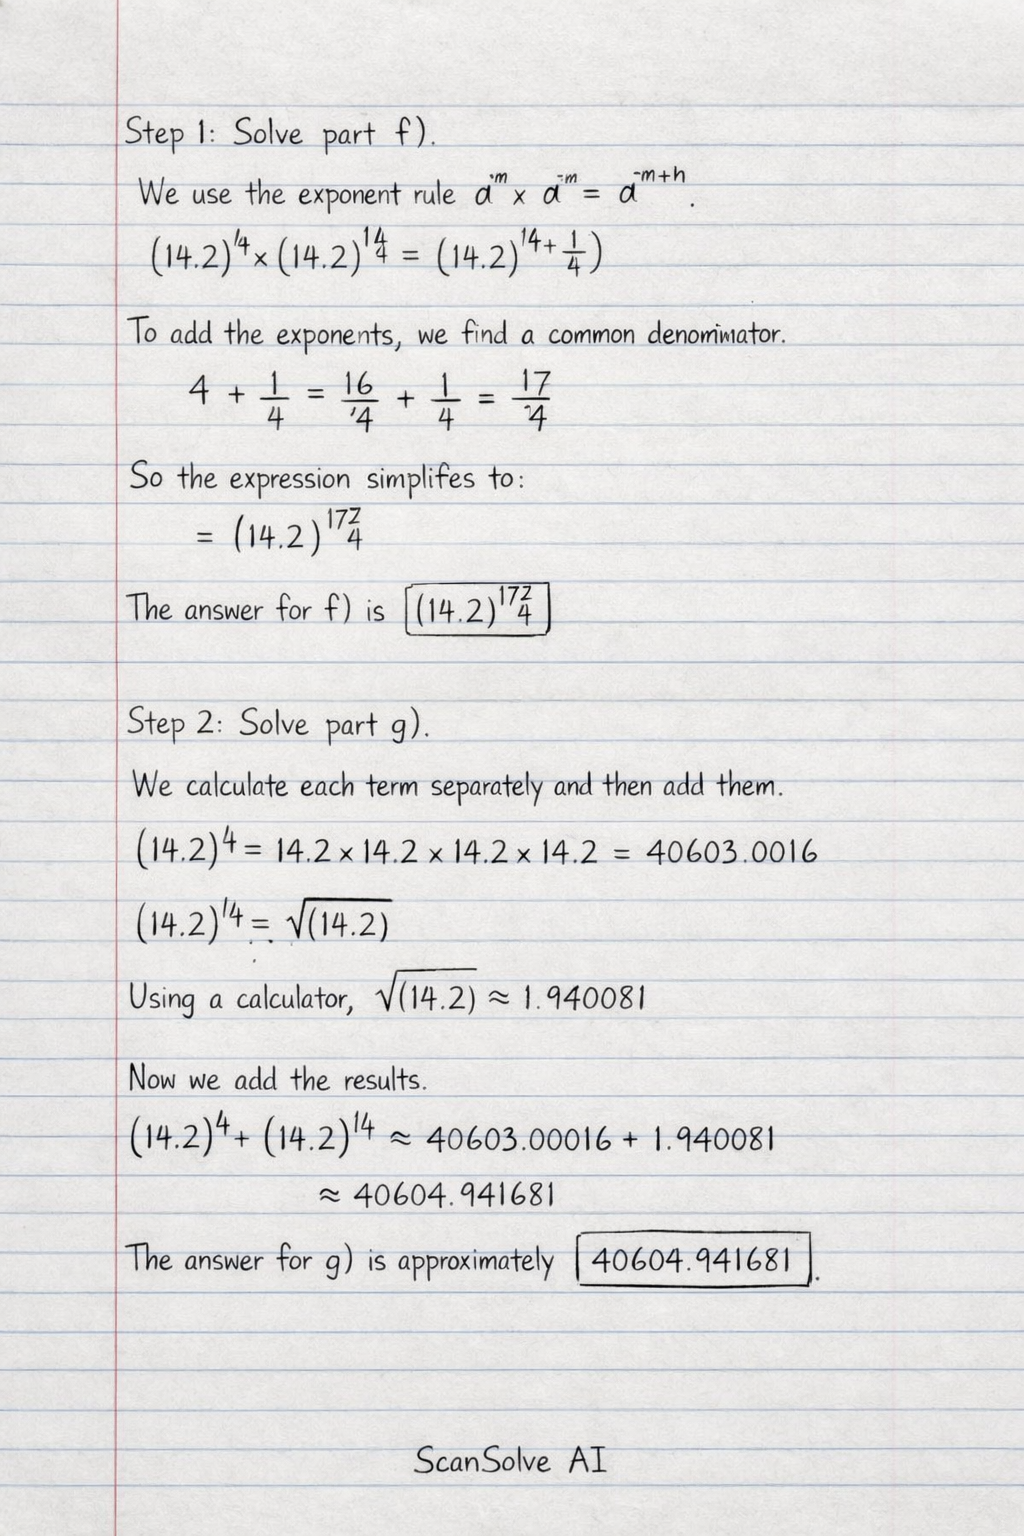 Step 1: Solve part f).
We use the exponent rule a^m × a^-m = a^-m+n.
(14.2)^14 × (14.2)^14/4 = (14.2)^14+1/4)
To add the exponents, we find a common denominator.
4 + 1/4 = 16/'4 + 1/4 = 17/4
So the expression simplifes to:
= (14.2)^17Z/4
The answer for f) is (14.2)^17Z/4
Step 2: Solve part g).
We calculate each term separately and then add them.
(14.2)^4 = 14.2 × 14.2 × 14.2 × 14.2 = 40603.0016
(14.2)^14 = √(14.2)
Using a calculator, √(14.2) ≈ 1.940081
Now we add the results.
(14.2)^4 + (14.2)^14 ≈ 40603.00016 + 1.940081
≈ 40604.941681
The answer for g) is approximately 40604.941681.
ScanSolve AI